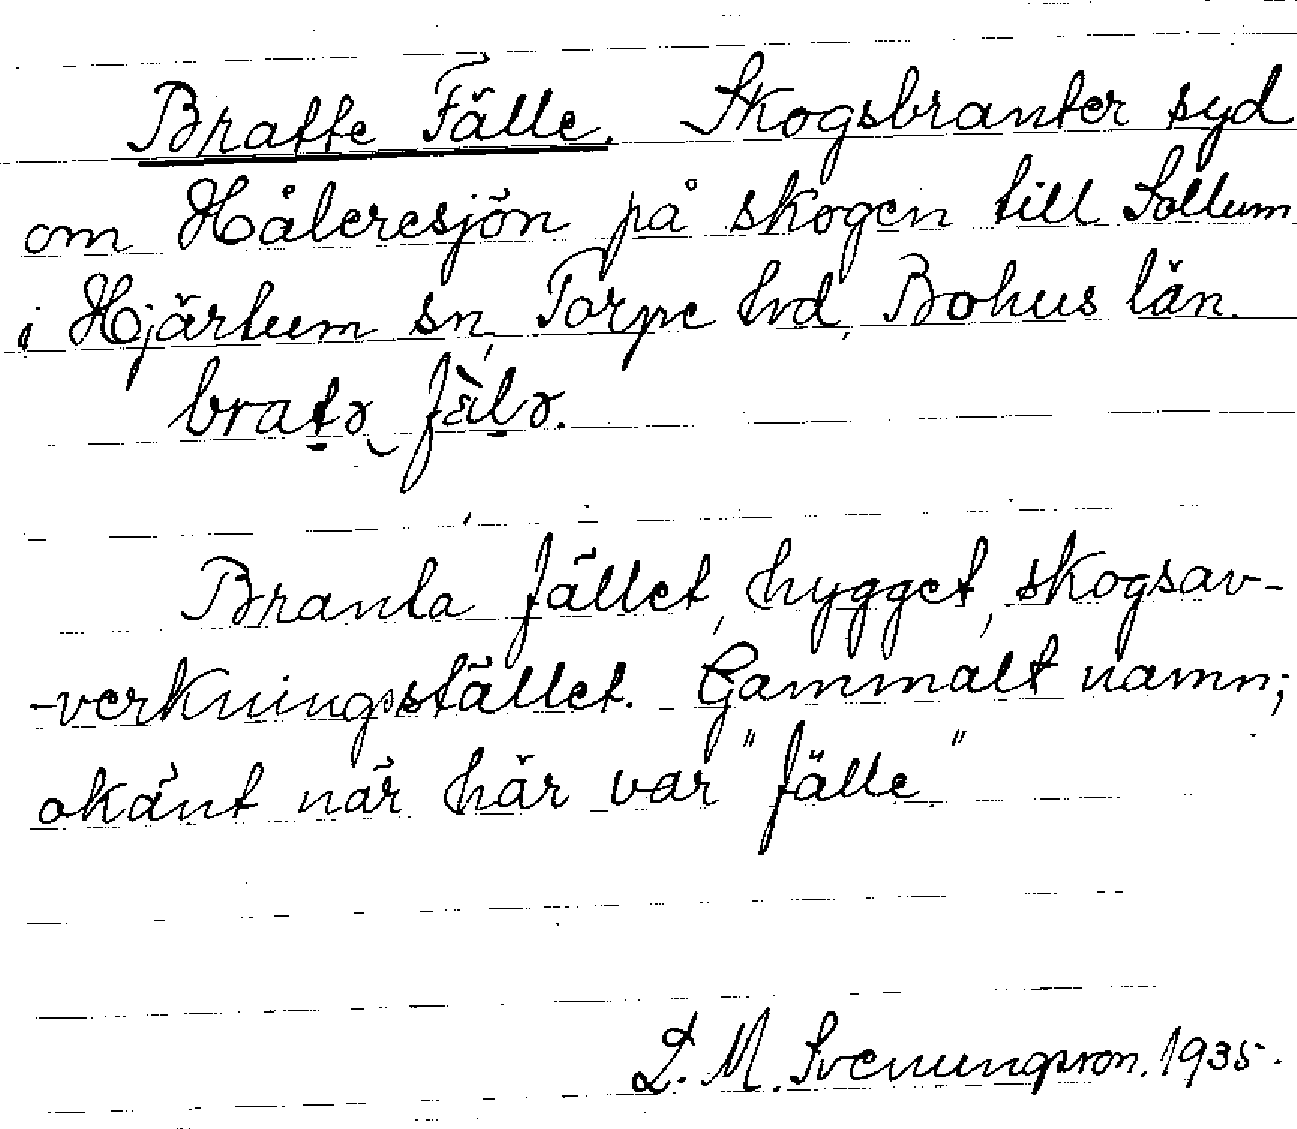 Bratte Fälle. Skogsbranter syd
om Håleresjön på skogen till Sollum
i Hjärtum sn, Torpe hd, Bohus län.
bratə fälə.
Branta fället, hygget, skogsav-
-verkningsstället. Gammalt namn;
okänt när här var "fälle".
L. M. Svenungsson. 1935.